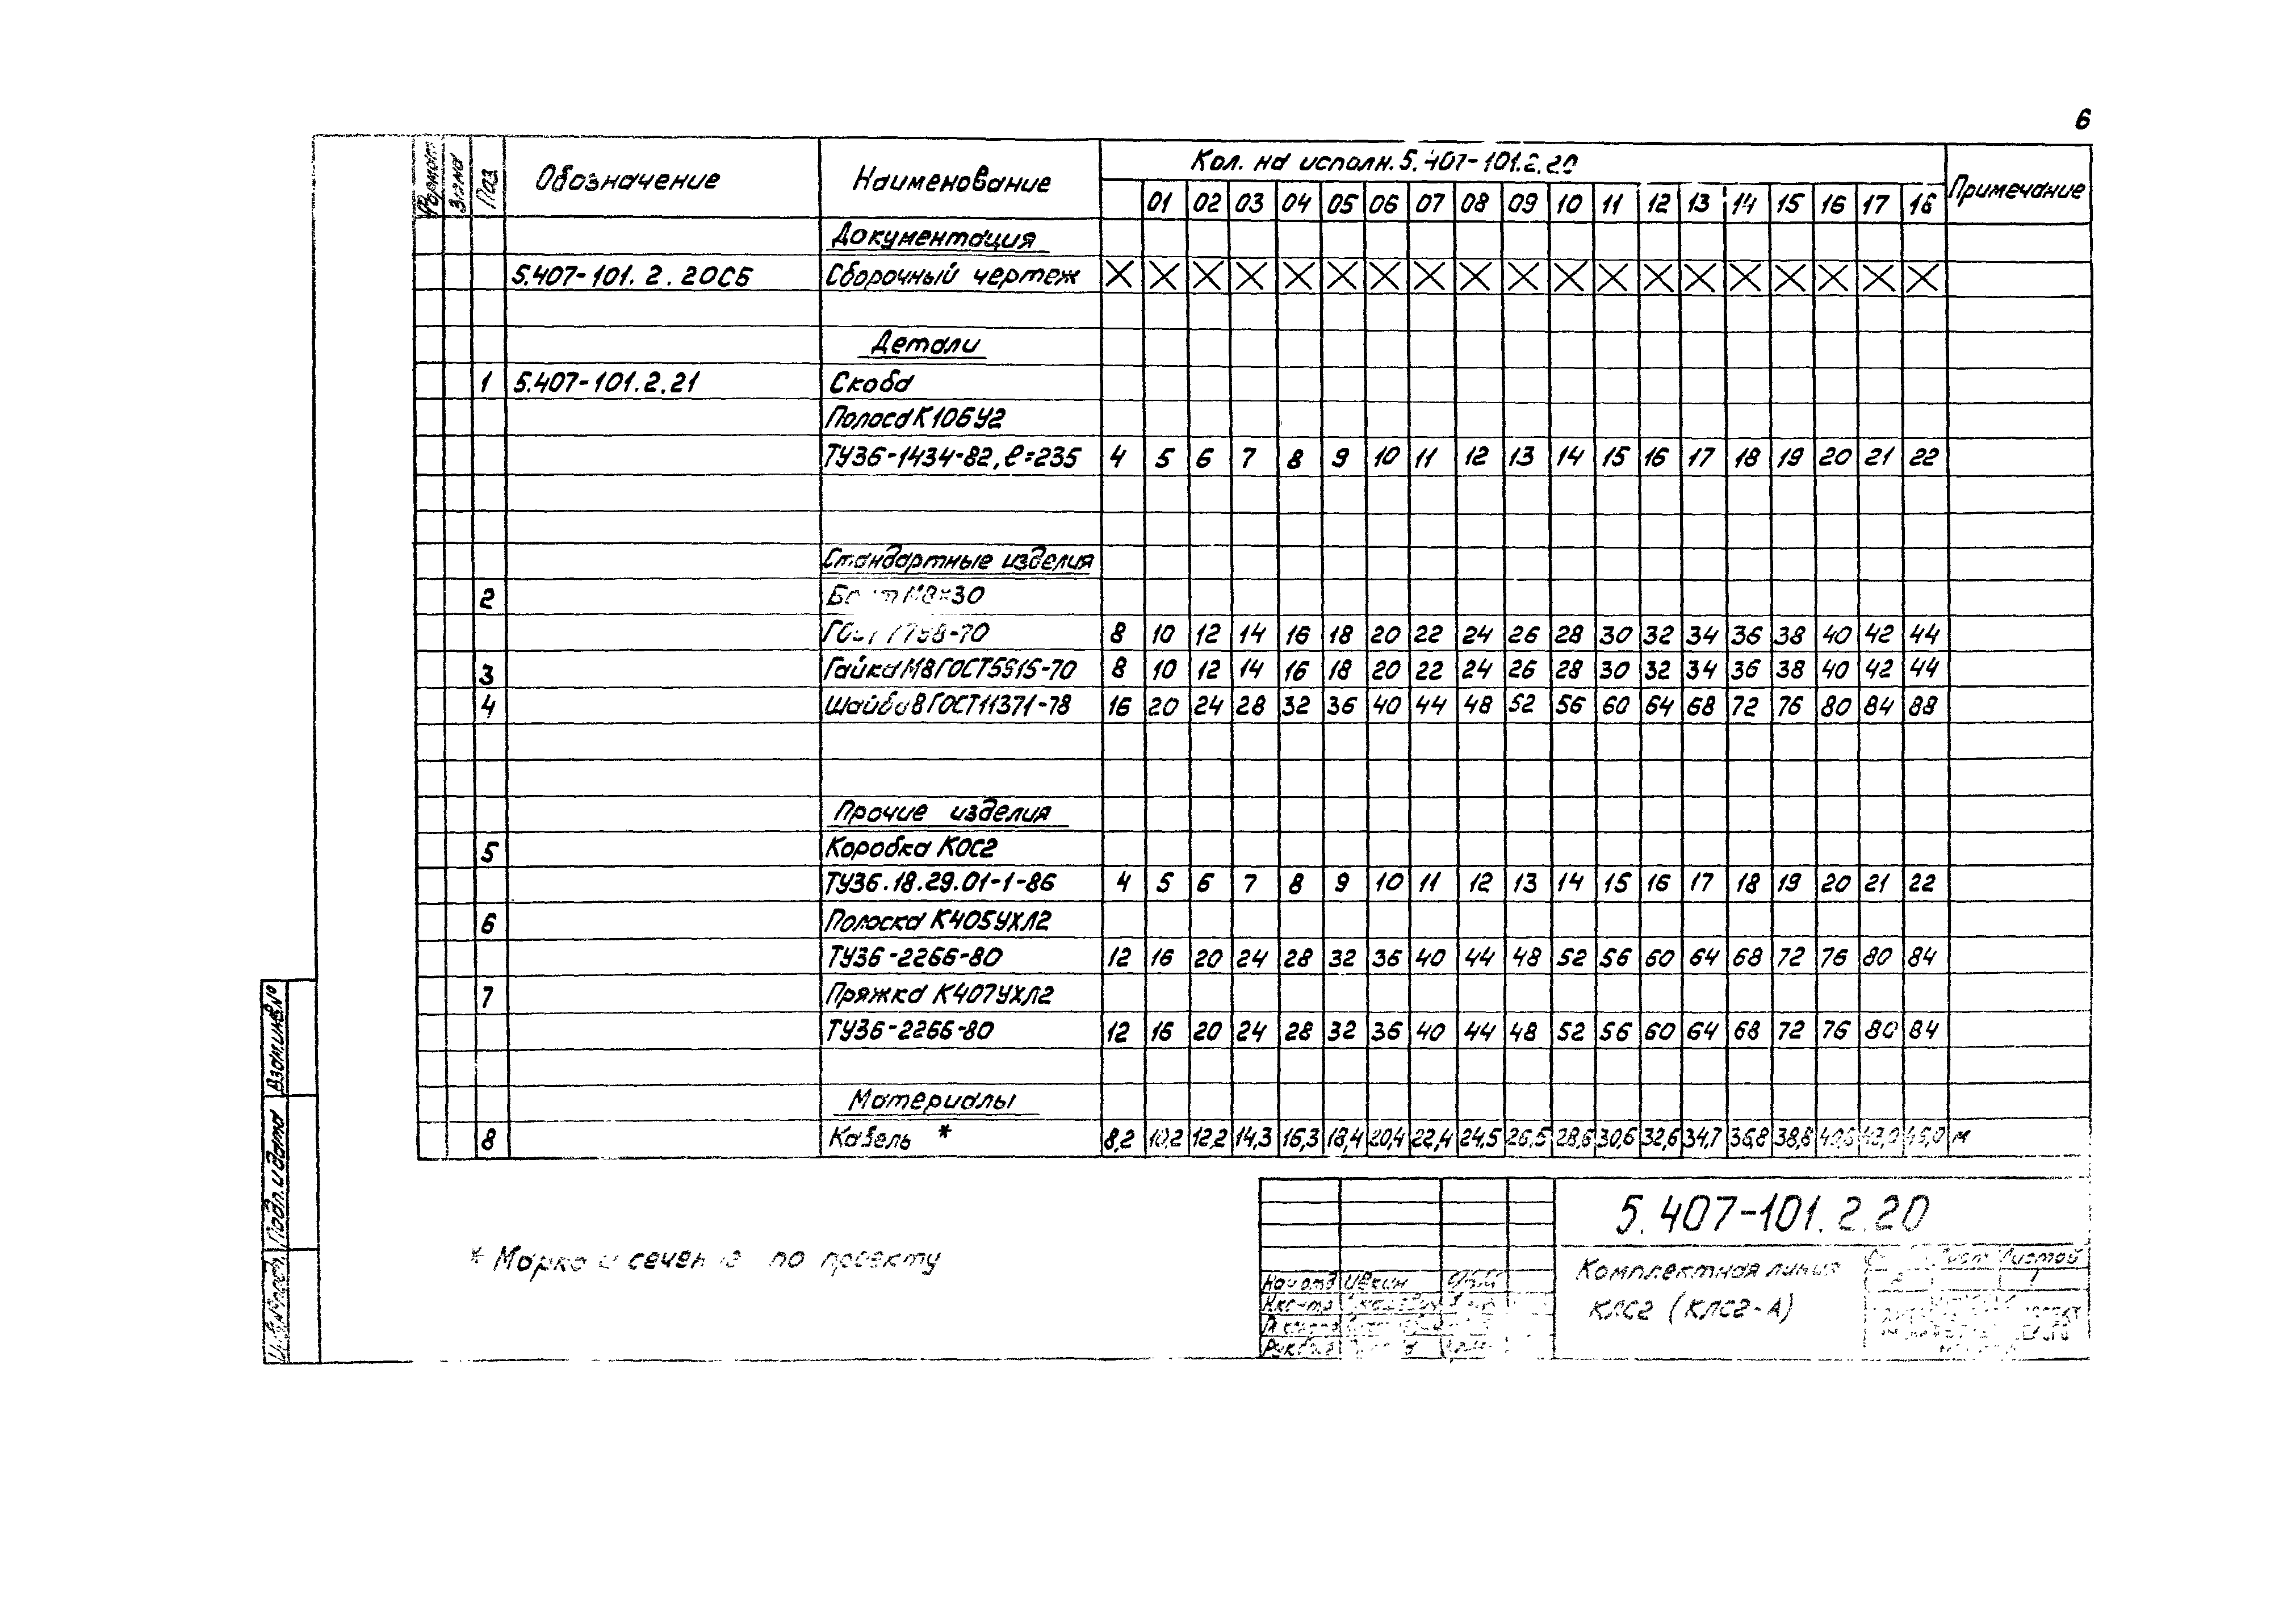 6
Формат Зона Поз. Обозначение Наименование Кол. на исполн. 5.407-101.2.20 Примечание
01 02 03 04 05 06 07 08 09 10 11 12 13 14 15 16 17 18
Документация
5.407-101.2.20СБ Сборочный чертеж X X X X X X X X X X X X X X X X X X X
Детали
1 5.407-101.2.21 Скоба
Полоса К106У2
ТУ36-1434-82, ℓ=235 4 5 6 7 8 9 10 11 12 13 14 15 16 17 18 19 20 21 22
Стандартные изделия
2 Болт М8×30
ГОСТ 7798-70 8 10 12 14 16 18 20 22 24 26 28 30 32 34 36 38 40 42 44
3 Гайка М8 ГОСТ 5915-70 8 10 12 14 16 18 20 22 24 26 28 30 32 34 36 38 40 42 44
4 Шайба 8 ГОСТ 11371-78 16 20 24 28 32 36 40 44 48 52 56 60 64 68 72 76 80 84 88
Прочие изделия
5 Коробка КОС2
ТУ36.18.29.01-1-86 4 5 6 7 8 9 10 11 12 13 14 15 16 17 18 19 20 21 22
6 Полоска К405УХЛ2
ТУ36-2266-80 12 16 20 24 28 32 36 40 44 48 52 56 60 64 68 72 76 80 84
7 Пряжка К407УХЛ2
ТУ36-2266-80 12 16 20 24 28 32 36 40 44 48 52 56 60 64 68 72 76 80 84
Материалы
8 Кабель * 8,2 10,2 12,2 14,3 16,3 18,4 20,4 22,4 24,5 26,5 28,6 30,6 32,6 34,7 36,8 38,8 м
* Марка и сечение по проекту
5.407-101.2.20
Комплектная линия
КЛС2 (КЛС2-А)
Лист Листов
1
Нач отд Ивкин
Взам инв №
Подп. и дата
Инв.№ подл.